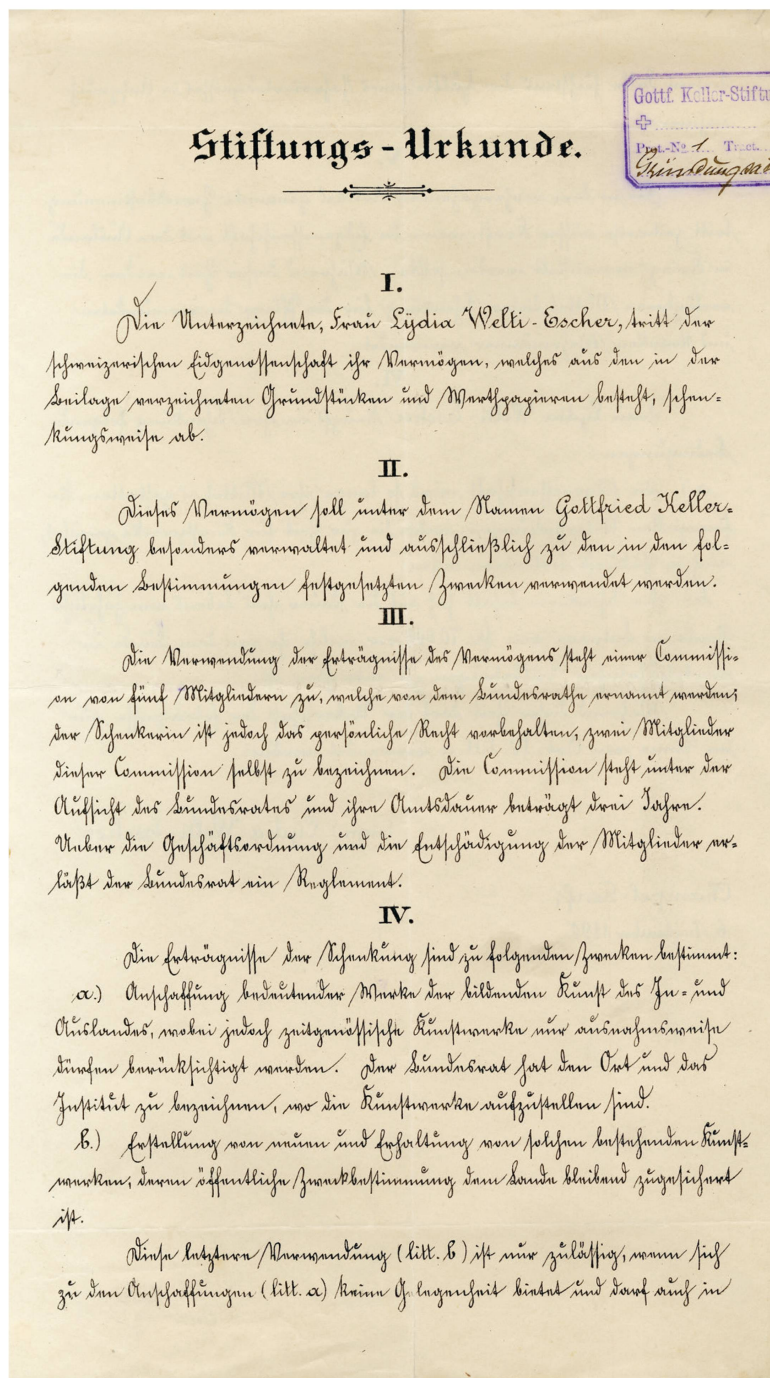 Gottf. Keller-Stiftu
Prot.-No. 1 Tract.
Stiftungs-Urkunde.
I.
Die Unterzeichnete, Frau Lydia Welti-Escher, tritt der
schweizerischen Eidgenossenschaft ihr Vermögen, welches aus den in der
Beilage verzeichneten Grundstücken und Werthpapieren besteht, schen-
kungsweise ab.
II.
Dieses Vermögen soll unter dem Namen Gottfried Keller-
Stiftung besonders verwaltet und ausschließlich zu den in den fol-
genden Bestimmungen festgesetzten Zwecken verwendet werden.
III.
Die Verwendung der Erträgnisse des Vermögens steht einer Commissi-
on von fünf Mitgliedern zu, welche von dem Bundesrathe ernannt werden;
der Schenkerin ist jedoch das persönliche Recht vorbehalten, zwei Mitglieder
dieser Commission selbst zu bezeichnen. Die Commission steht unter der
Aufsicht des Bundesrates und ihre Amtsdauer beträgt drei Jahre.
Ueber die Geschäftsordnung und die Entschädigung der Mitglieder er-
läßt der Bundesrat ein Reglement.
IV.
Die Erträgnisse der Schenkung sind zu folgenden Zwecken bestimmt:
a.) Anschaffung bedeutender Werke der bildenden Kunst des In- und
Auslandes, wobei jedoch zeitgenössische Kunstwerke nur ausnahmsweise
dürfen berücksichtigt werden. Der Bundesrat hat den Ort und das
Institut zu bezeichnen, wo die Kunstwerke aufzustellen sind.
b.) Erstellung von neuen und Erhaltung von solchen bestehenden Kunst-
werken, deren öffentliche Zweckbestimmung dem Lande bleibend zugesichert
ist.
Diese letztere Verwendung (litt. b) ist nur zulässig, wenn sich
zu den Anschaffungen (litt. a) keine Gelegenheit bietet und darf auch in